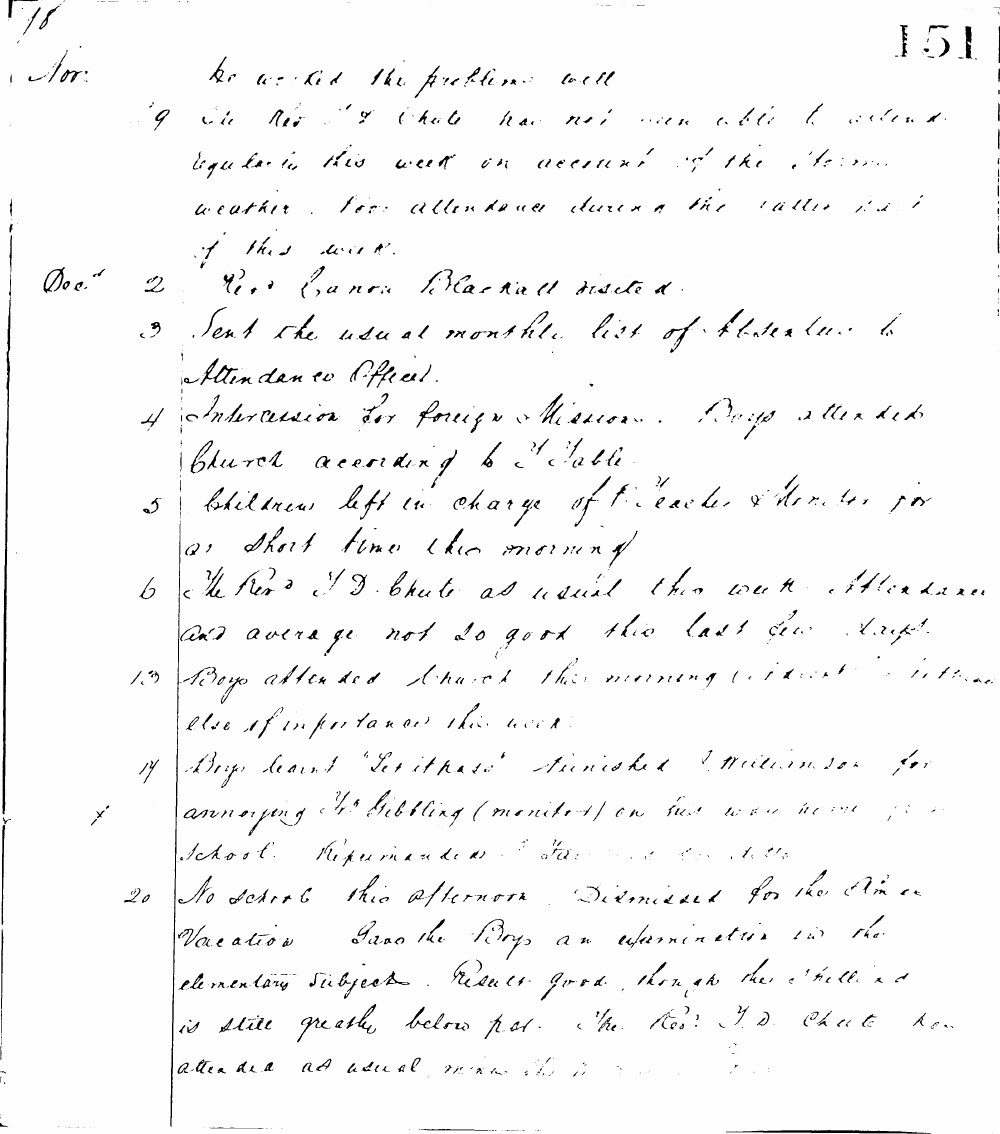 18
151
Nov. he worked the problems well
29 The Rev T D Chute has not been able to attend
regularly this week on account of the stormy
weather. Poor attendance during the latter part
of this week.
Decr 2 Revd Canon Blackall visited.
3 Sent the usual monthly list of Absentees to
Attendance Officer.
4 Intercession for foreign Missions. Boys attended
Church according to T Table
5 Children left in charge of P Teacher & Monitor for
a short time this morning
6 The Revd T D. Chute as usual this week. Attendance
and average not so good this last few days.
13 Boys attended Church this morning
else of importance this week.
17 Boys learnt Punished J. Williamson for
x annoying Fr Gibbling (monitor) on his way home from
School. Reprimanded
20 No school this afternoon. Dismissed for the Xmas
Vacation Gave the Boys an examination in the
elementary Subjects. Result good, though the
is still greatly below par. The Revd T. D. Chute has
attended as usual